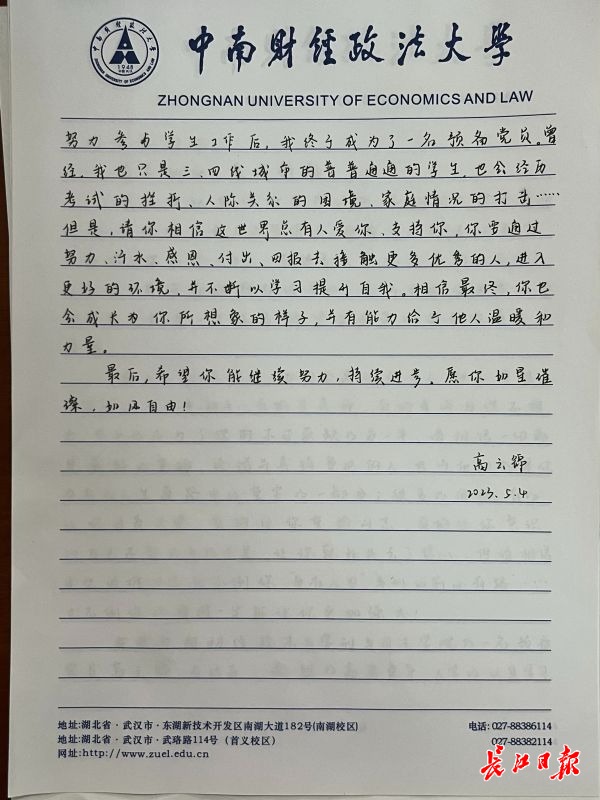 中南财经政法大学
1948
ZHONGNAN UNIVERSITY OF ECONOMICS AND LAW
努力参与学生工作后,我终于成为了一名预备党员。曾
经,我也只是三、四线城市的普普通通的学生,也会经历
考试的挫折、人际关系的困境、家庭情况的打击……
但是,请你相信这世界总有人爱你、支持你,你要通过
努力、汗水、感恩、付出、回报去接触更多优秀的人,进入
更好的环境,并不断以学习提升自我。相信最终,你也
会成长为你所想象的样子,并有能力给予他人温暖和
力量。
最后,希望你能继续努力,持续进步。愿你如星璀
璨,如风自由!
高云锦
2023.5.4
地址:湖北省·武汉市·东湖新技术开发区南湖大道182号(南湖校区) 电话: 027-88386114
地址:湖北省·武汉市·武珞路114号(首义校区) 027-88382114
网址:http://www.zuel.edu.cn
长江日报